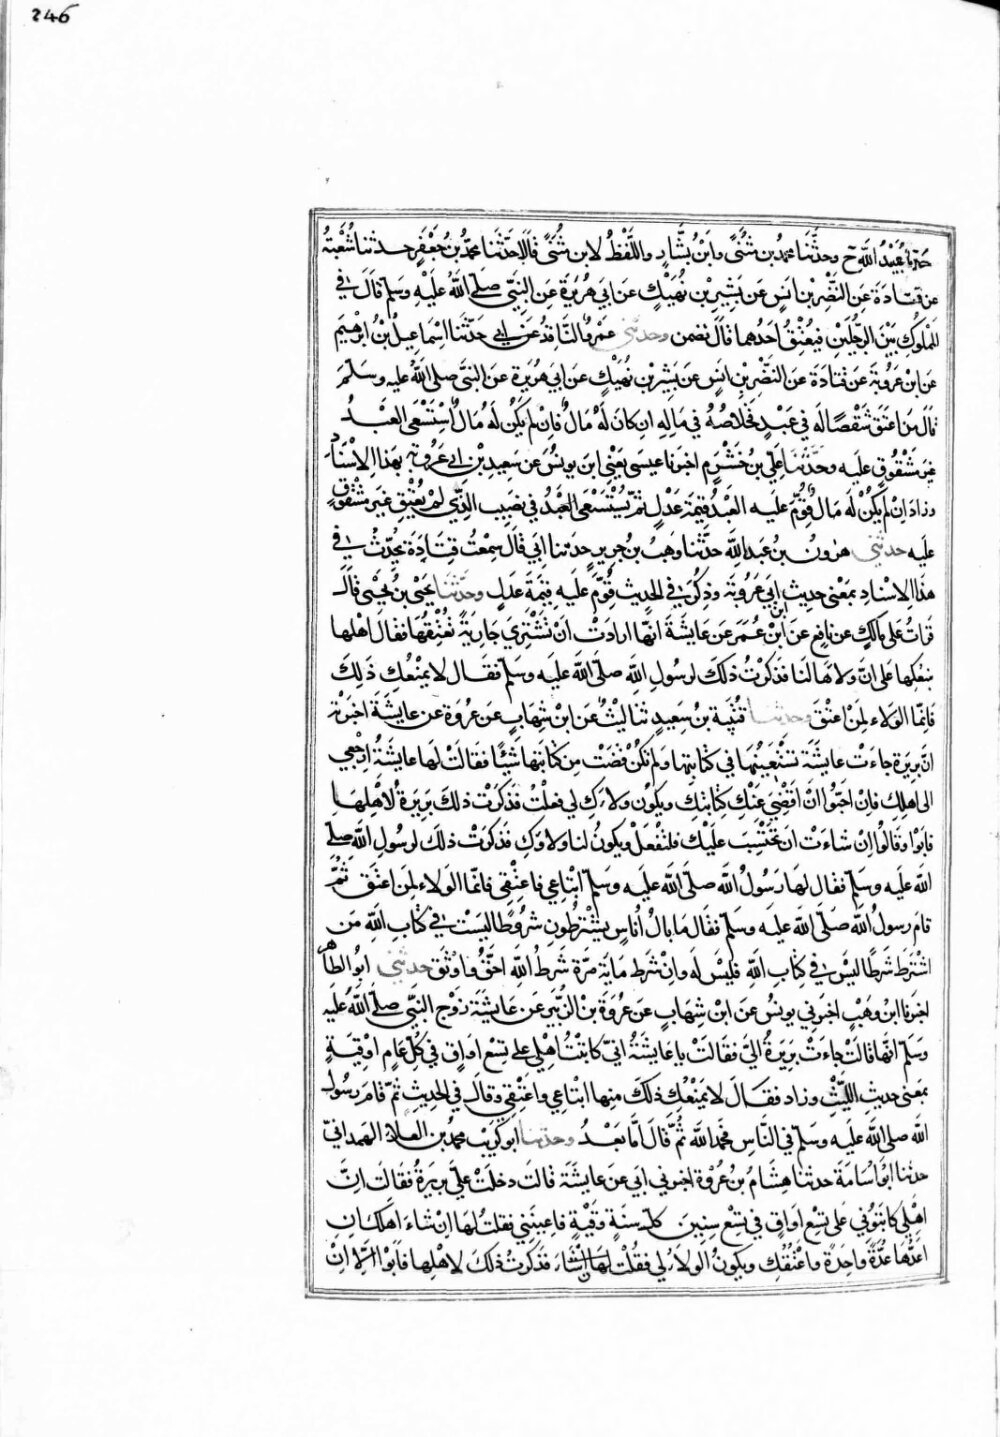 246
عبيد الله ح وحدثنا محمد بن مثنى وابن بشار واللفظ لابن مثنى قالا حدثنا محمد بن جعفر حدثنا شعبة
عن قتادة عن النضر بن انس عن بشير بن نهيك عن ابي هريرة عن النبي صلى الله عليه وسلم قال في
المملوك بين الرجلين فيعتق احدهما قال يضمن وحدثني عمرو الناقد حدثنا اسماعيل بن ابرهيم
عن ابن عروبة عن قتادة عن النضر بن انس عن بشير بن نهيك عن ابي هريرة عن النبي صلى الله عليه وسلم
قال من اعتق شقصا له في عبد فخلاصه في ماله ان كان له مال فان لم يكن له مال استسعى العبد
غير مشقوق عليه وحدثنا علي بن خشرم اخبرنا عيسى يعني ابن يونس عن سعيد بن ابي عروبة بهذا الاسناد
وزاد ان لم يكن له مال قوم عليه العبد قيمة عدل ثم يستسعى العبد في نصيب الذي لم يعتق غير مشقوق
عليه حدثني هرون بن عبد الله حدثنا وهب بن جرير حدثنا ابي قال سمعت قتادة يحدث في
هذا الاسناد بمعنى حديث ابي عروبة وذكر في الحديث قوم عليه قيمة عدل وحدثنا يحيى بن يحيى قال
قرات على مالك عن نافع عن ابن عمر عن عايشة انها ارادت ان تشتري جارية تعتقها فقال اهلها
نبيعكها على ان ولاءها لنا فذكرت ذلك لرسول الله صلى الله عليه وسلم فقال لا يمنعك ذلك
فانما الولاء لمن اعتق وحدثنا قتيبة بن سعيد ثنا ليث عن ابن شهاب عن عروة عن عايشة اخبرته
ان بريرة جاءت عايشة تستعينها في كتابتها ولم تكن قضت من كتابتها شيئا فقالت لها عايشة ارجعي
الى اهلك فان احبوا ان اقضي عنك كتابتك ويكون ولاءك لي فعلت فذكرت ذلك بريرة لاهلها
فابوا وقالوا ان شاءت ان تحتسب عليك فلتفعل ويكون لنا ولاوك فذكرت ذلك لرسول الله صلى
الله عليه وسلم فقال لها رسول الله صلى الله عليه وسلم ابتاعي فاعتقي فانما الولاء لمن اعتق ثم
قام رسول الله صلى الله عليه وسلم فقال ما بال اناس يشترطون شروطا ليست في كتاب الله من
اشترط شرطا ليس في كتاب الله فليس له وان شرط ماية مرة شرط الله احق واوثق حدثني ابو الطاهر
اخبرنا ابن وهب اخبرني يونس عن ابن شهاب عن عروة بن الزبير عن عايشة زوج النبي صلى الله عليه
وسلم انها قالت جاءت بريرة الي فقالت يا عايشة اني كاتبت اهلي على تسع اواق في كل عام اوقية
بمعنى حديث الليث وزاد فقال لا يمنعك ذلك منها ابتاعي واعتقي وقال في الحديث ثم قام رسول
الله صلى الله عليه وسلم في الناس فحمد الله ثم قال اما بعد وحدثنا ابو كريب محمد بن العلاء الهمداني
حدثنا ابو اسامة حدثنا هشام بن عروة اخبرني ابي عن عايشة قالت دخلت علي بريرة فقالت ان
اهلي كاتبوني على تسع اواق في تسع سنين كل سنة وقية فاعينيني فقلت لها ان شاء اهلك ان
اعدها عدة واحدة واعتقك ويكون الولاء لي فقلت فذكرت ذلك لاهلها فابوا الا ان